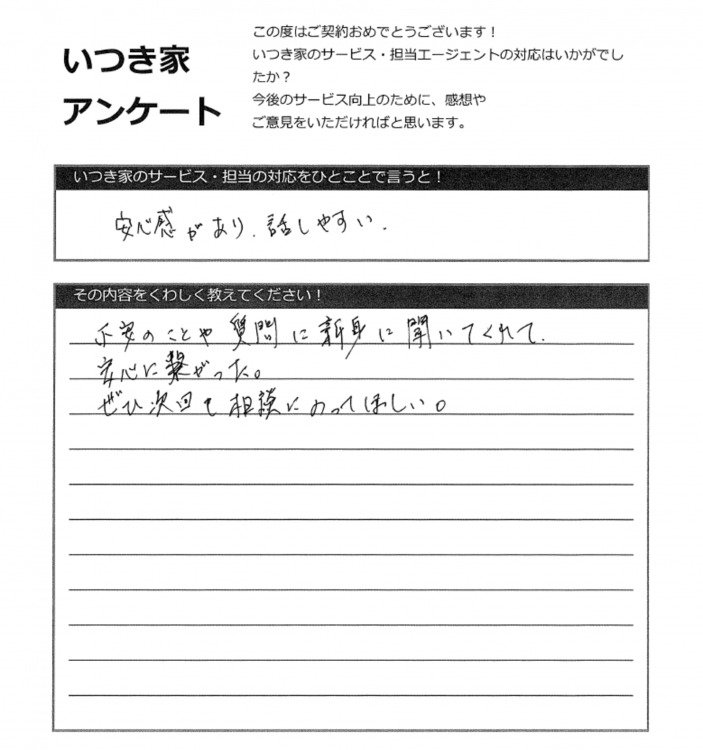 いつき家
アンケート
この度はご契約おめでとうございます！
いつき家のサービス・担当エージェントの対応はいかがでし
たか？
今後のサービス向上のために、感想や
ご意見をいただければと思います。
いつき家のサービス・担当の対応をひとことで言うと！
安心感があり、話しやすい.
その内容をくわしく教えてください！
不安のことや質問に新身に聞いてくれて、
安心に繋がった。
ぜひ次回も相談にのってほしい。